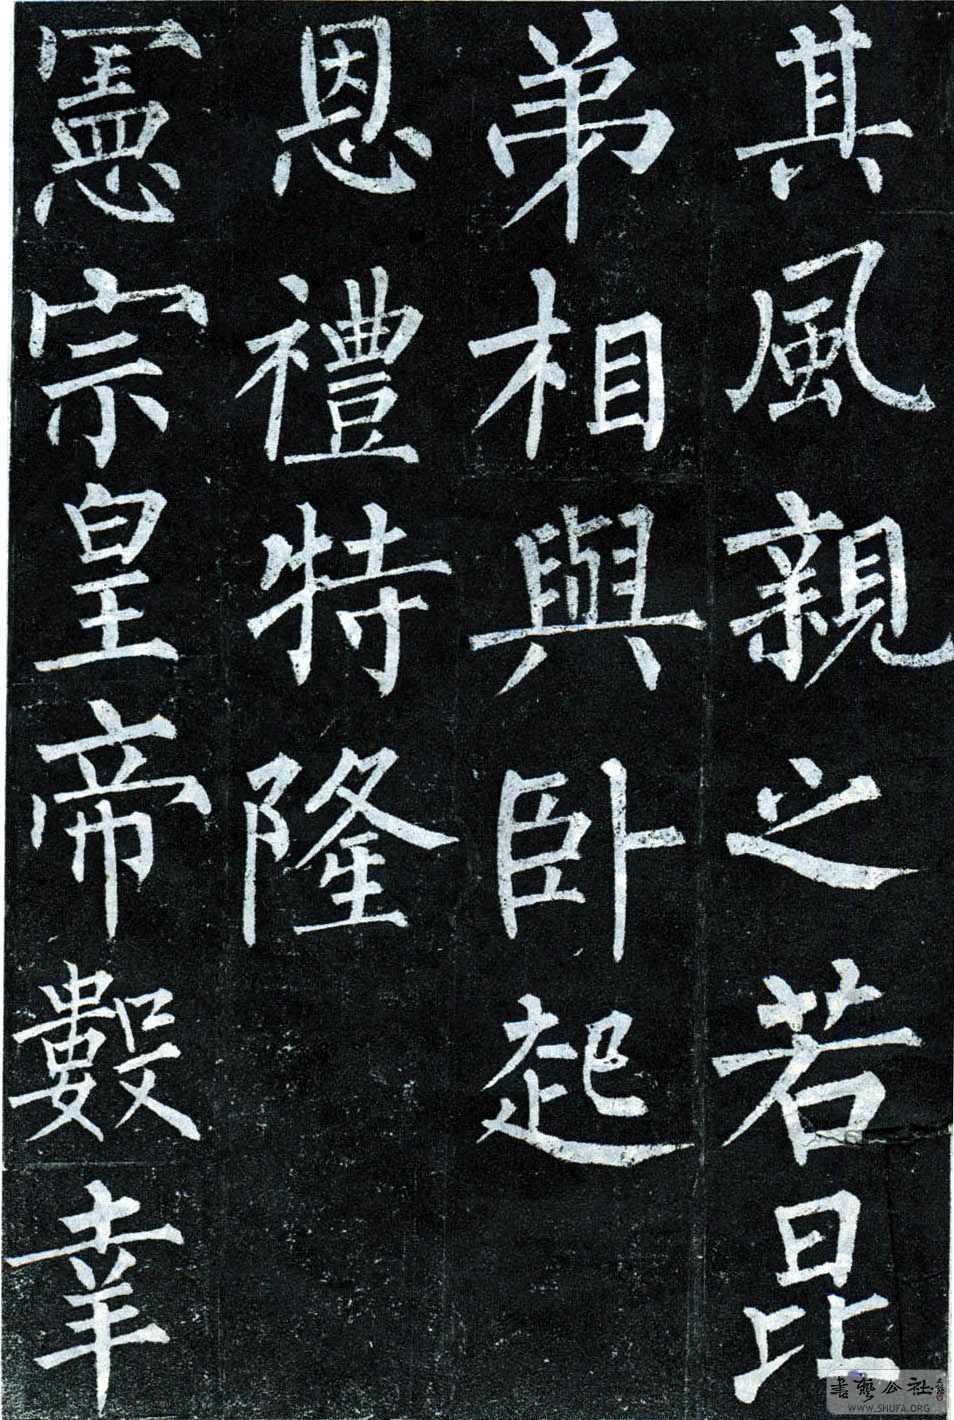 其風親之若昆
弟相與卧起
恩禮特隆
憲宗皇帝數幸
書藝公社
WWW.SHUFA.ORG